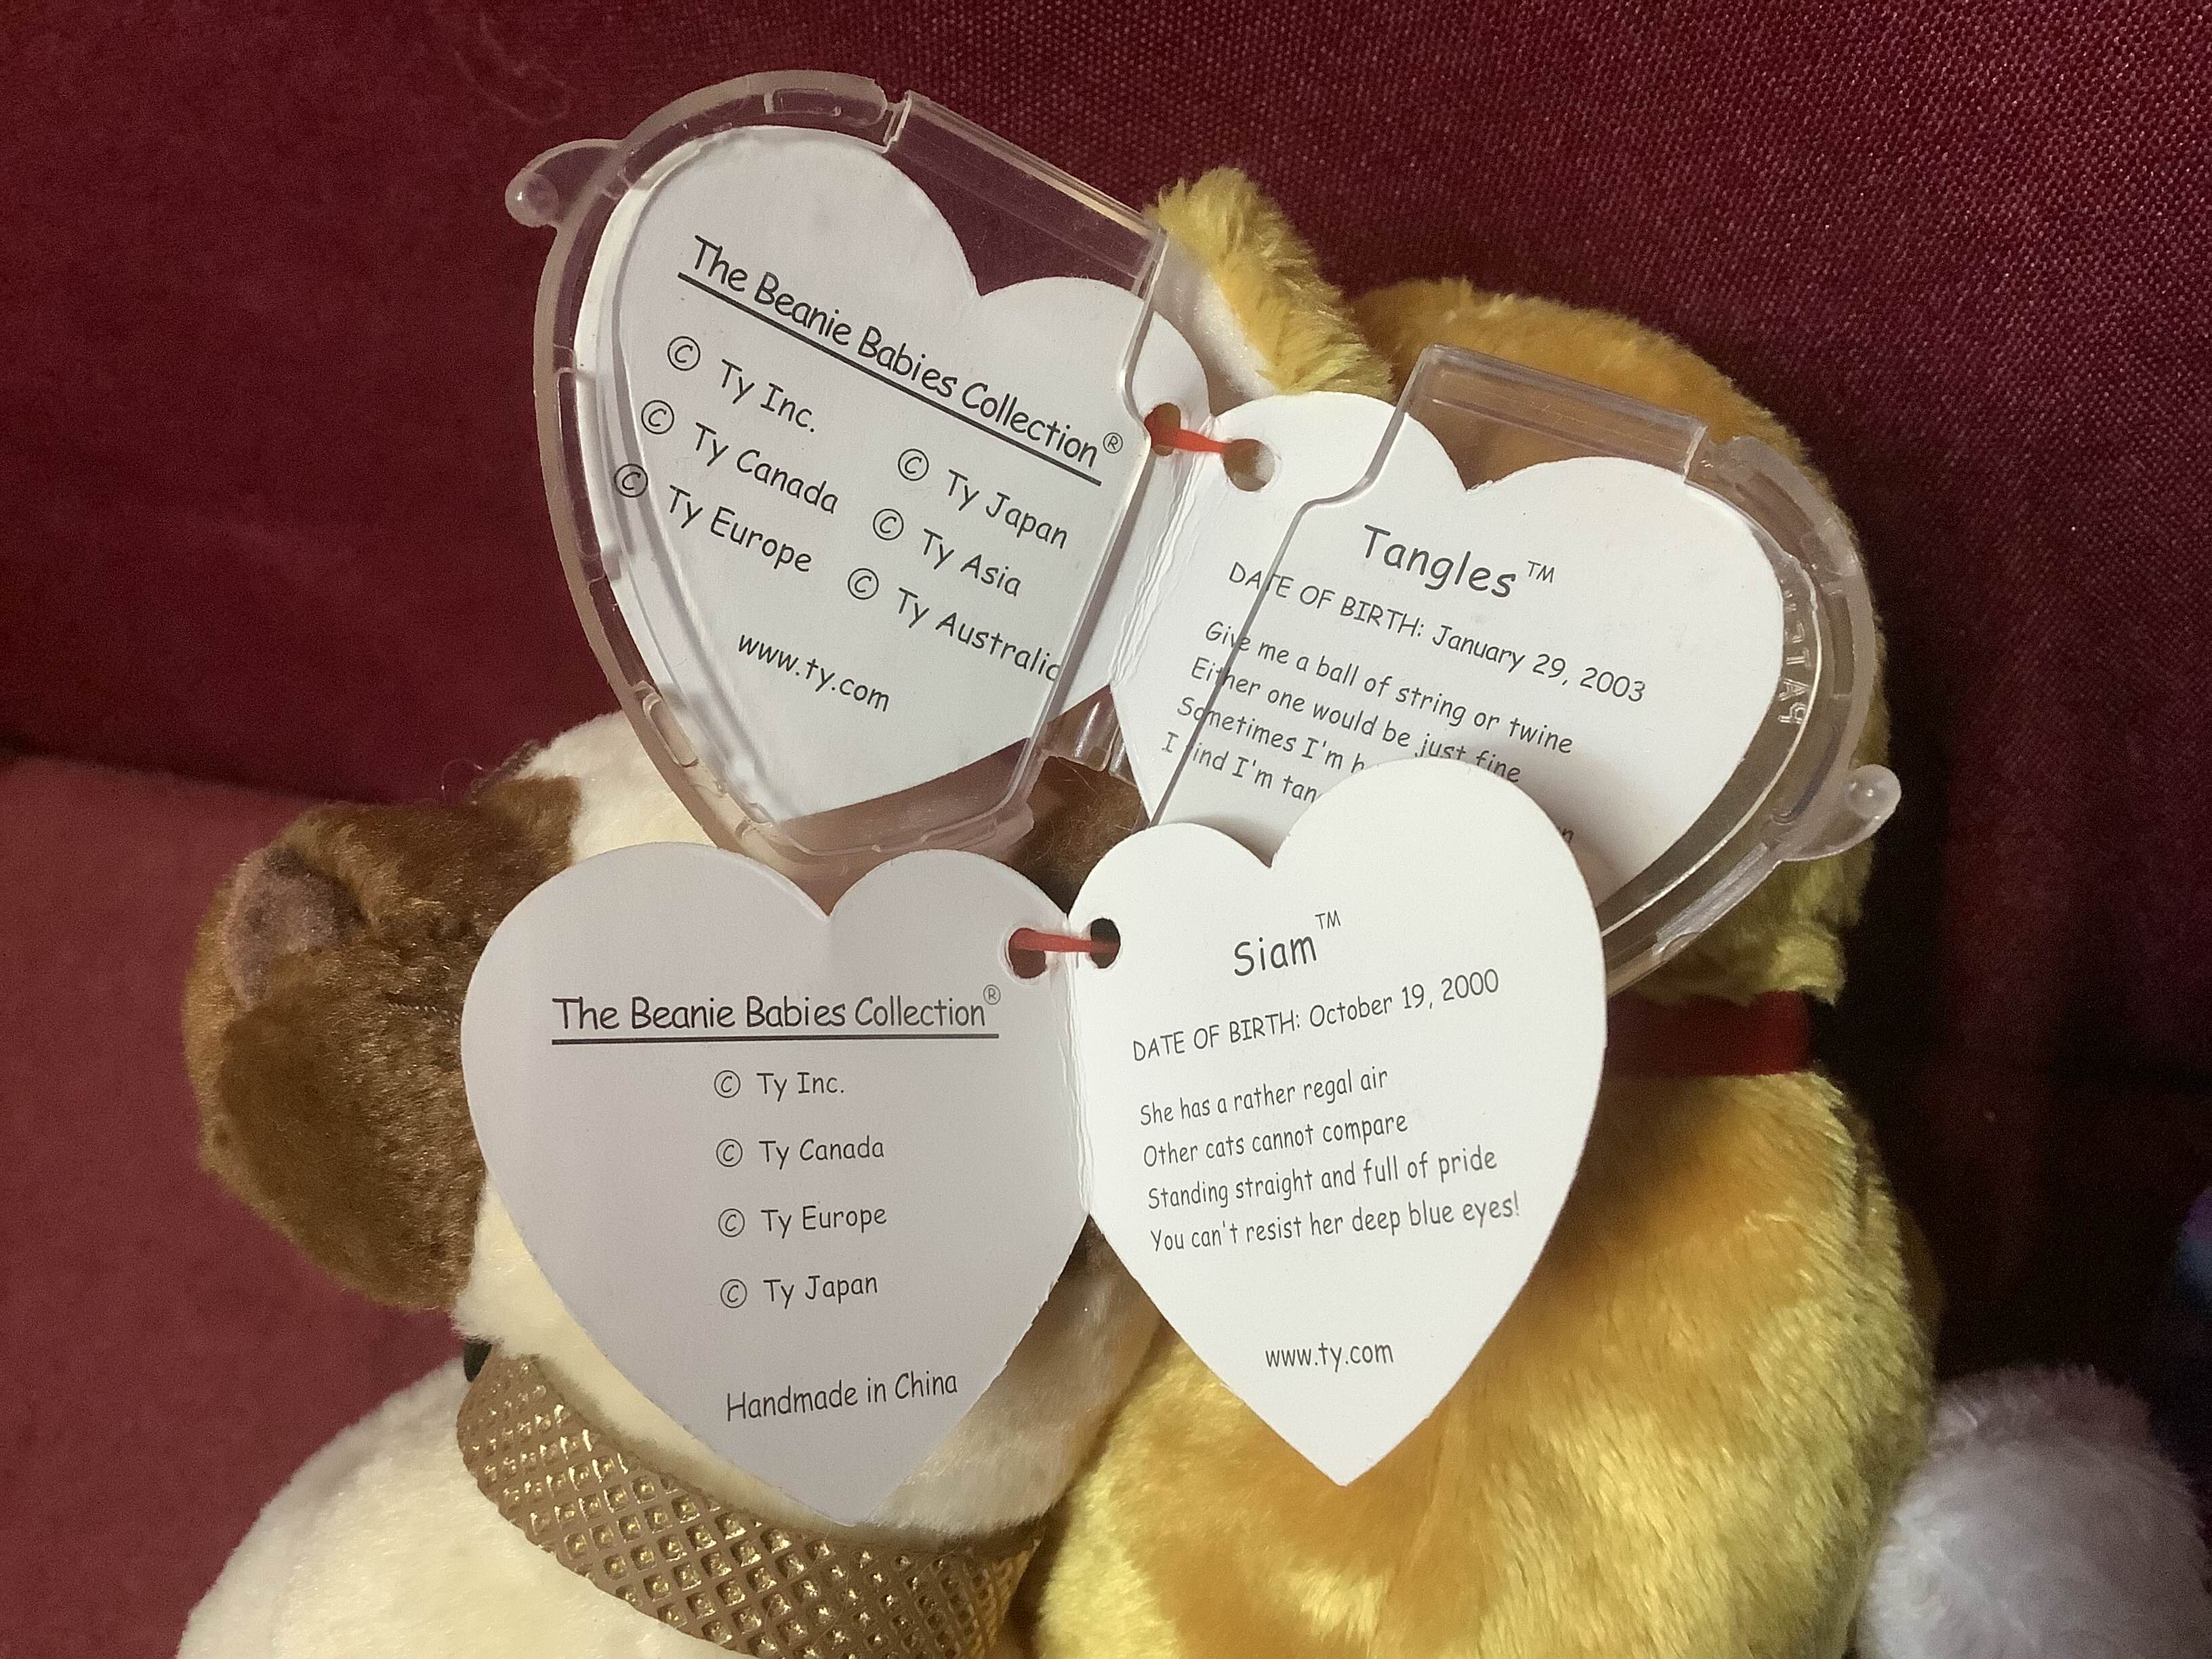 The Beanie Babies Collection®
© Ty Inc.
© Ty Canada
© Ty Europe
© Ty Japan
© Ty Asia
© Ty Australia
www.ty.com
Tangles™
DATE OF BIRTH: January 29, 2003
Give me a ball of string or twine
Either one would be just fine
Sometimes I'm
I find I'm
The Beanie Babies Collection®
© Ty Inc.
© Ty Canada
© Ty Europe
© Ty Japan
Handmade in China
Siam™
DATE OF BIRTH: October 19, 2000
She has a rather regal air
Other cats cannot compare
Standing straight and full of pride
You can't resist her deep blue eyes!
www.ty.com